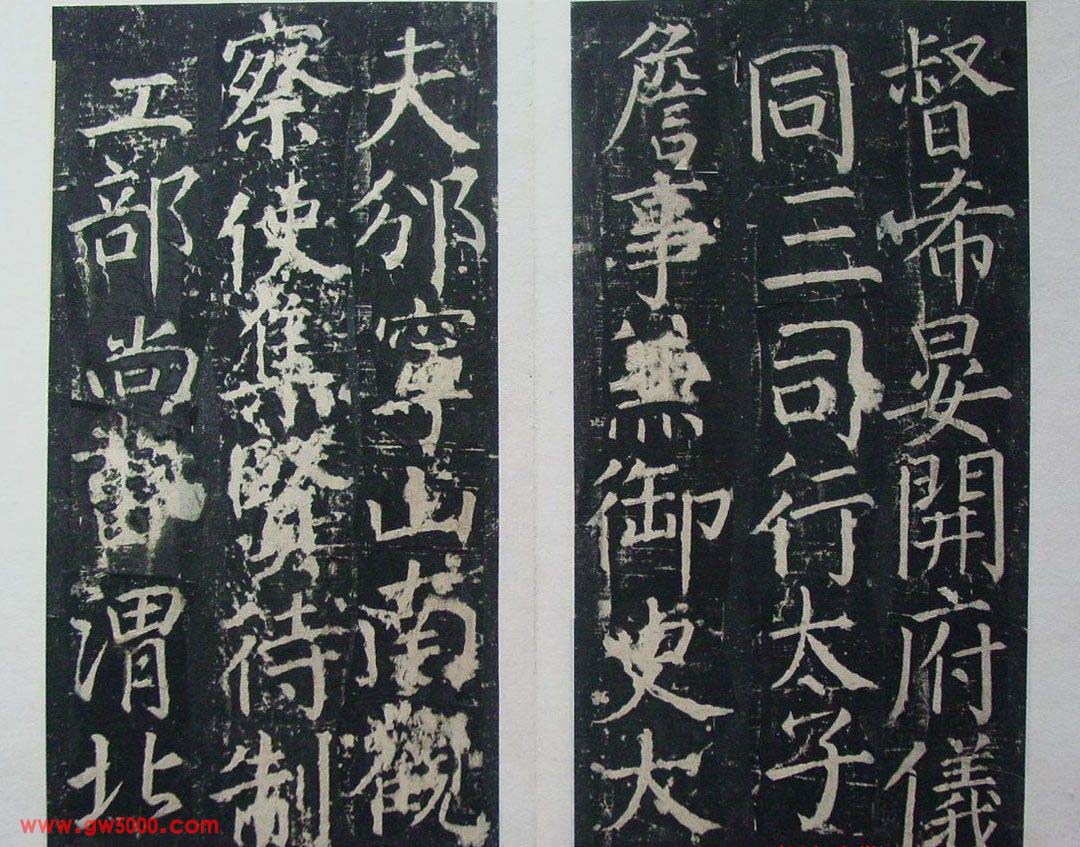 督希晏開府儀
同三司行太子
詹事兼御史大
夫邠寧山南觀
察使集賢待制
工部尚書渭北
www.gw5000.com